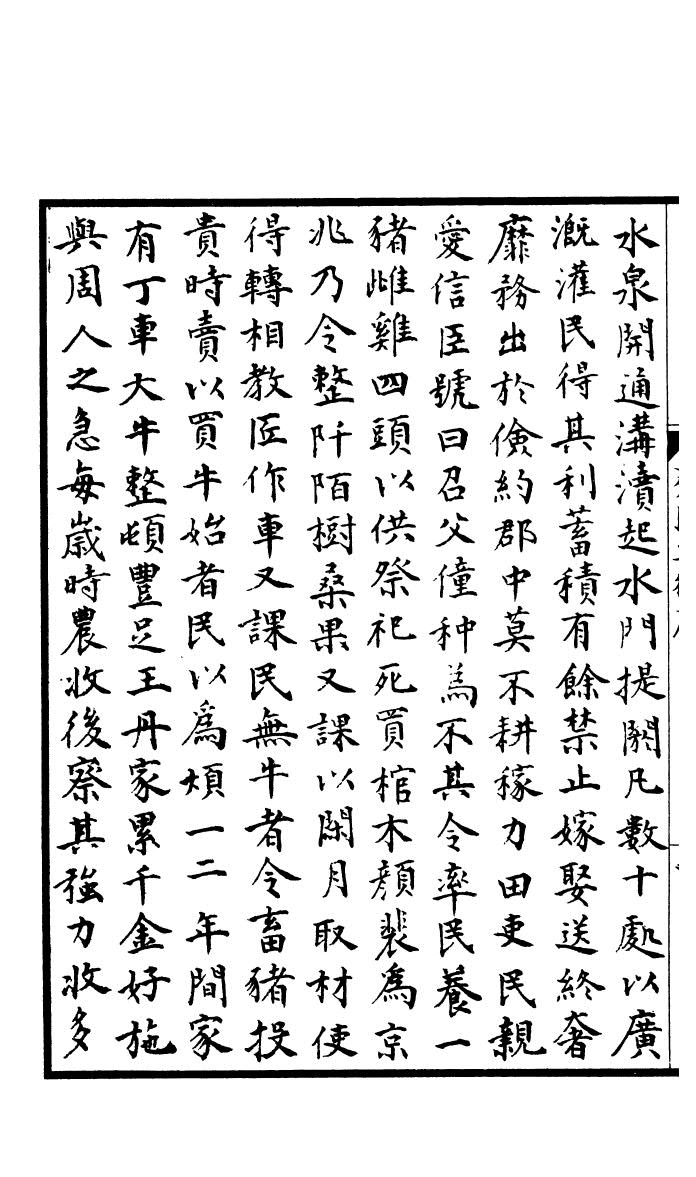 水泉開通溝瀆起水門提閼凡數十處以廣
溉灌民得其利蓄積有餘禁止嫁娶送終奢
靡務出於儉約郡中莫不耕稼力田吏民親
愛信臣號曰召父僮种為不其令率民養一
豬雌雞四頭以供祭祀死買棺木顔裴爲京
兆乃令整阡陌樹桑果又課以閑月取材使
得轉相教匠作車又課民無牛者令畜豬投
貴時賣以買牛始者民以爲煩一二年間家
有丁車大牛整頓豐足王丹家累千金好施
與周人之急每歲時農收後察其強力收多